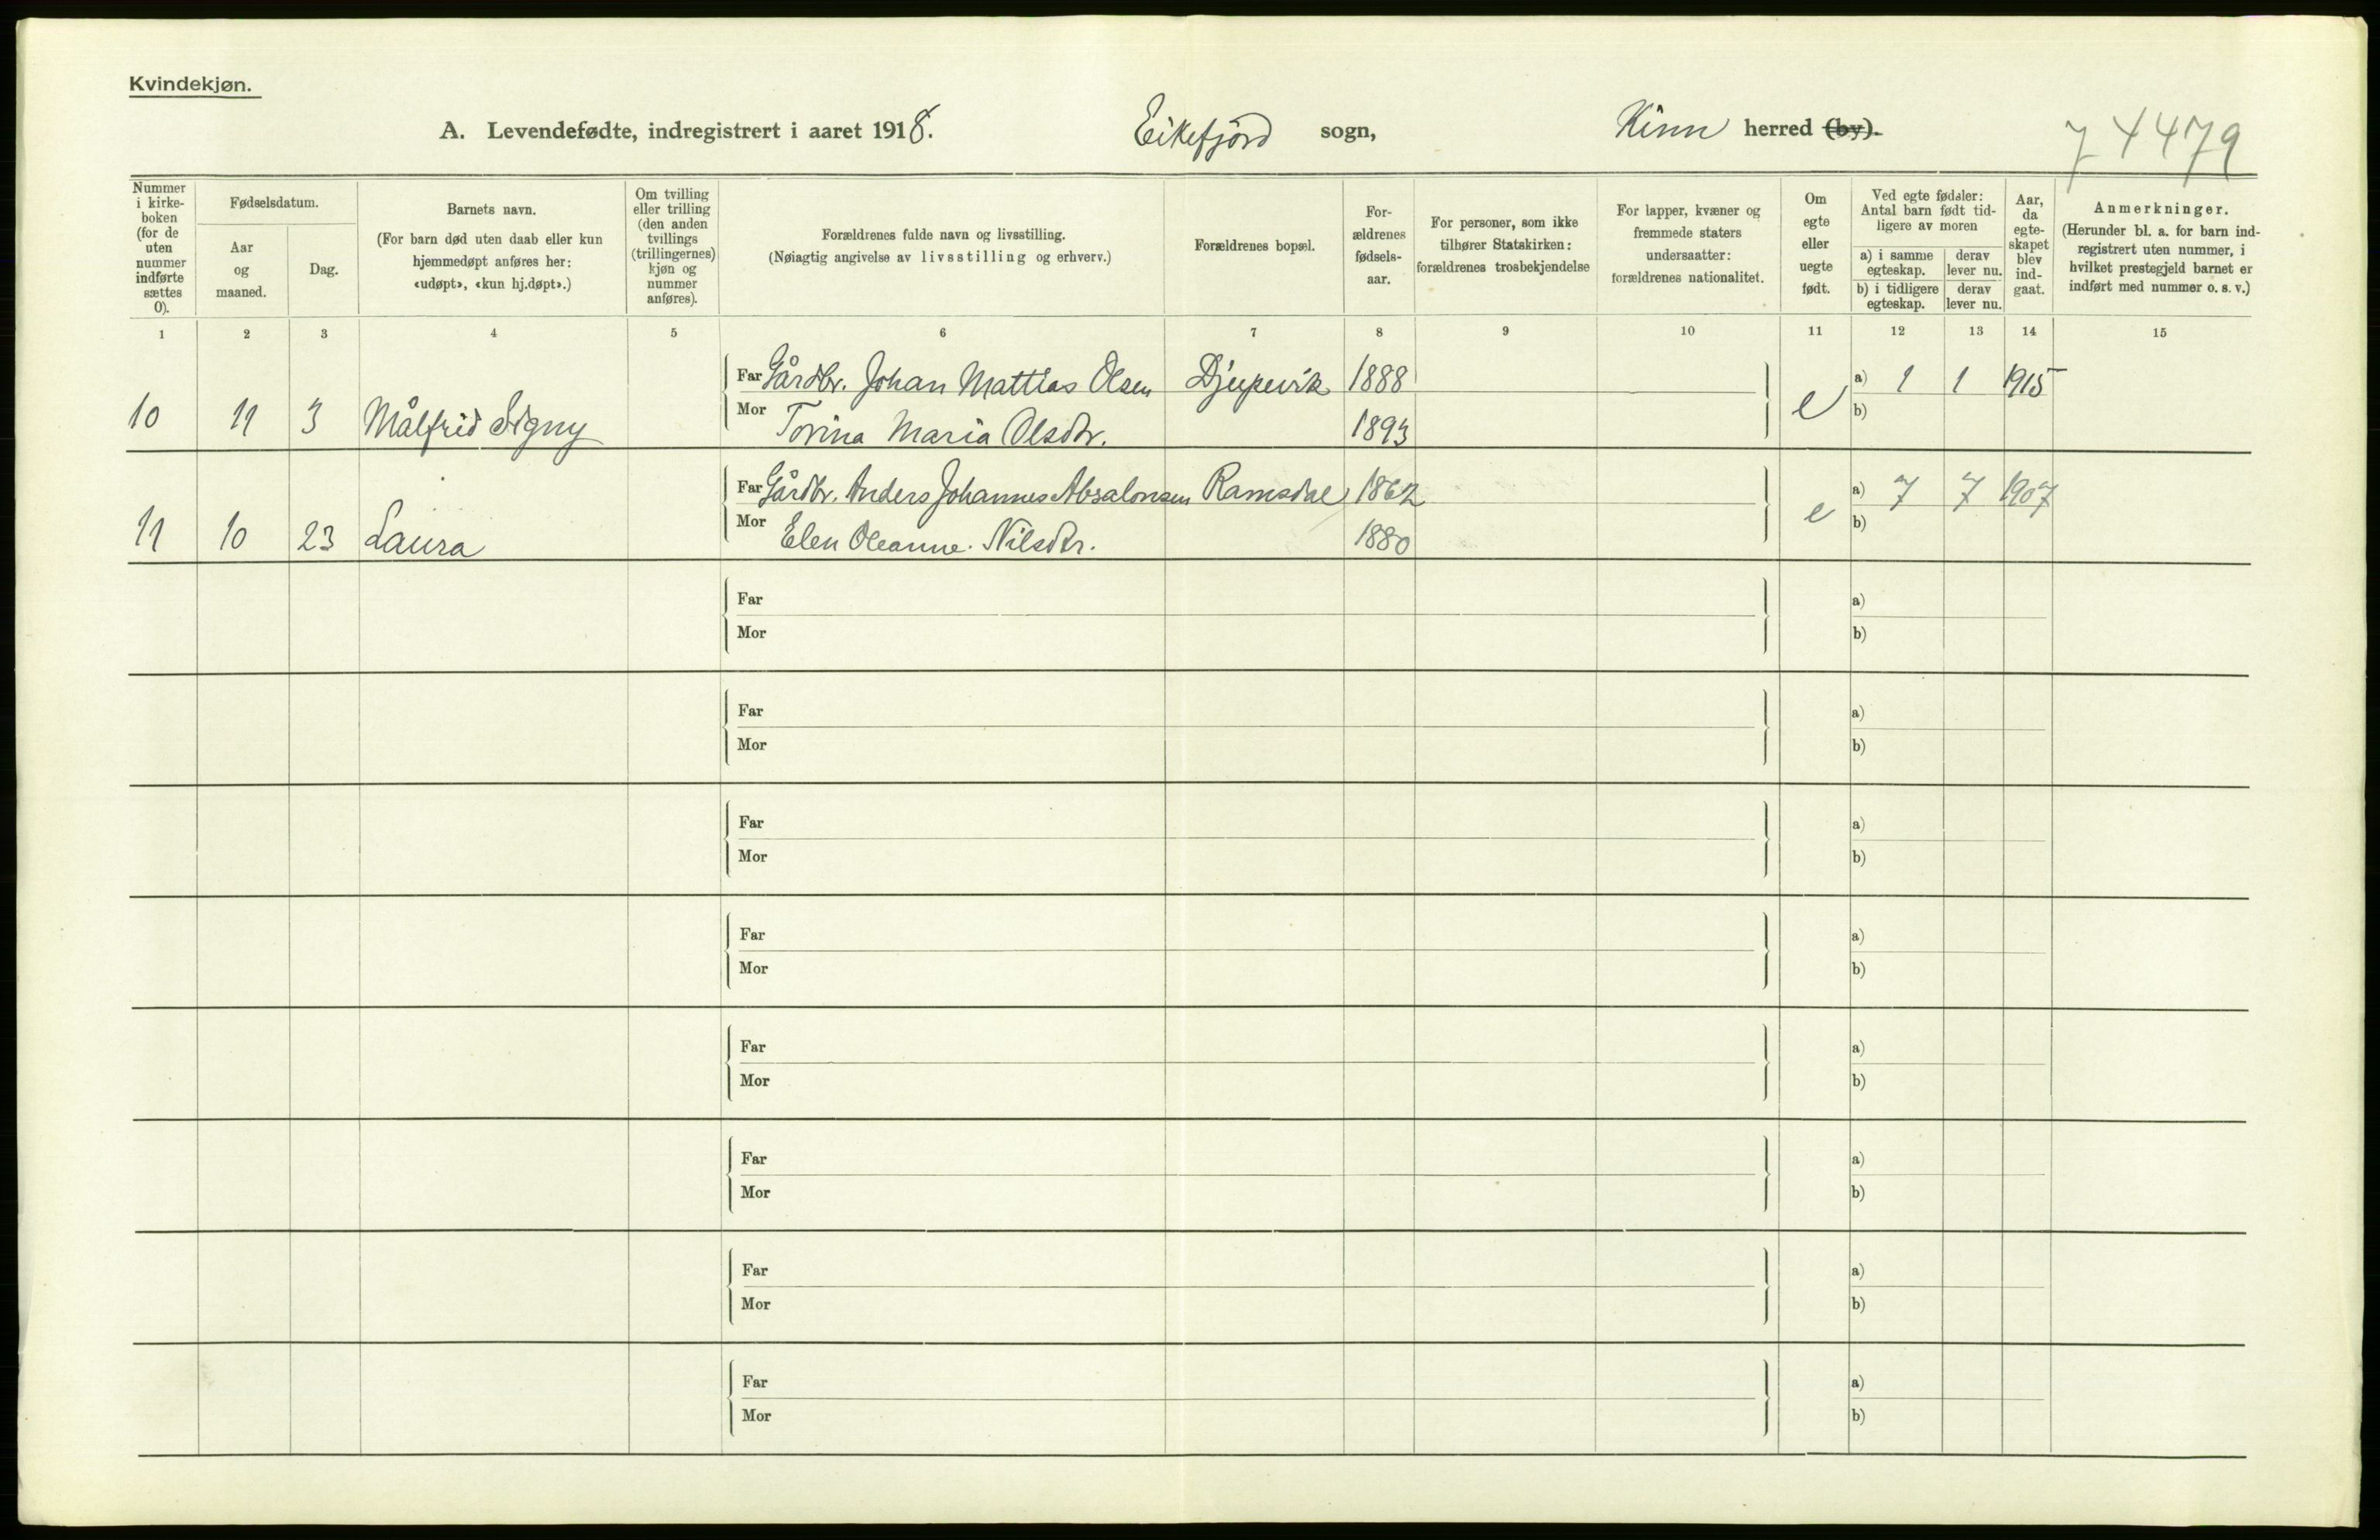 Kvindekjøn.
A. Levendefødte, indregistrert i aaret 1918. Eikefjord sogn, Kinn herred (by).
7 4479
Nummer i kirkeboken (for de uten nummer indførte sættes 0).
Fødselsdatum.
Aar og maaned.
Dag.
Barnets navn.
(For barn død uten daab eller kun hjemmedøpt anføres her: «udøpt», «kun hj.døpt».)
Om tvilling eller trilling (den anden tvillings (trillingernes) kjøn og nummer anføres).
Forældrenes fulde navn og livsstilling.
(Nøiagtig angivelse av livsstilling og erhverv.)
Forældrenes bopæl.
Forældrenes fødselsaar.
For personer, som ikke tilhører Statskirken: forældrenes trosbekjendelse
For lapper, kvæner og fremmede staters undersaatter: forældrenes nationalitet.
Om egte eller uegte født.
Ved egte fødsler: Antal barn født tidligere av moren
a) i samme egteskap. derav lever nu.
b) i tidligere egteskap. derav lever nu.
Aar, da egteskapet blev indgaat.
Anmerkninger.
(Herunder bl. a. for barn indregistrert uten nummer, i hvilket prestegjeld barnet er indført med nummer o. s. v.)
1 2 3 4 5 6 7 8 9 10 11 12 13 14 15
Far Gårdbr. Johan Mattias Olsen Djupevik 1888 a) 1 1 1915
10 11 3 Målfrid Signy Mor Torina Maria Olsdtr. 1893 e b)
Far Gårdbr. Anders Johannes Absalonsen Ramsdal 1862 a) 7 7 1907
11 10 23 Laura Mor Elen Oleanne Nilsdtr. 1880 e b)
Far a)
Mor b)
Far a)
Mor b)
Far a)
Mor b)
Far a)
Mor b)
Far a)
Mor b)
Far a)
Mor b)
Far a)
Mor b)
Far a)
Mor b)